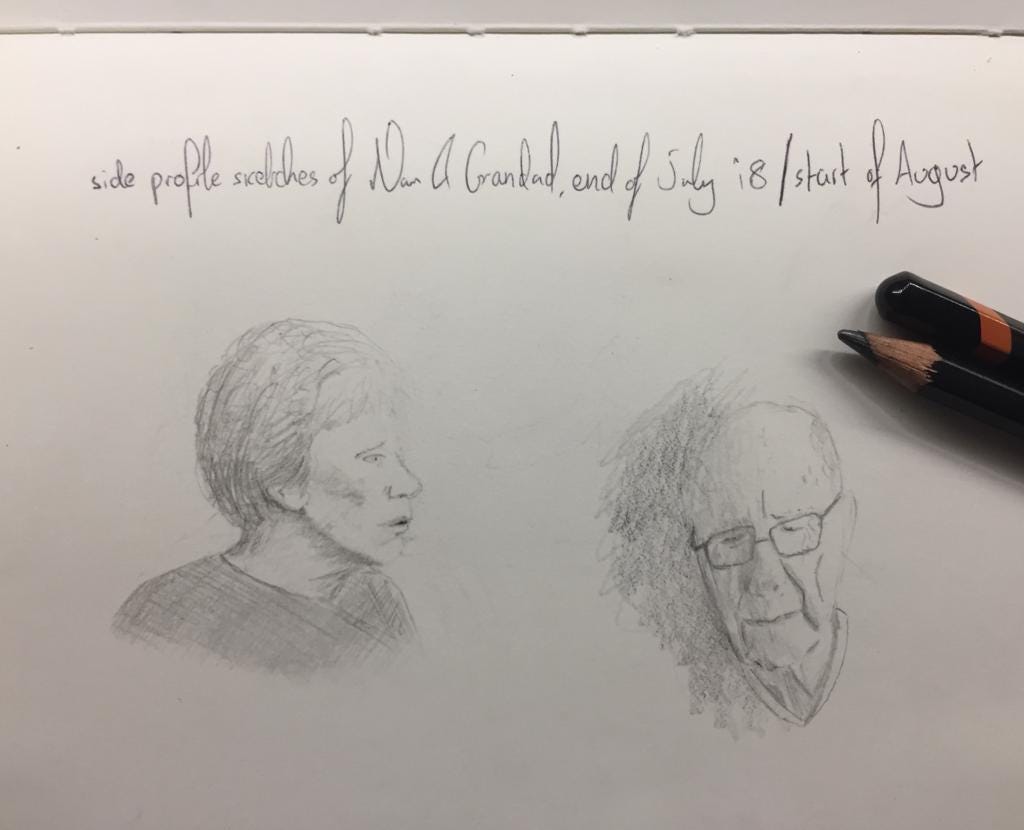 side profile sketches of Nan & Grandad, end of July '18 / start of August